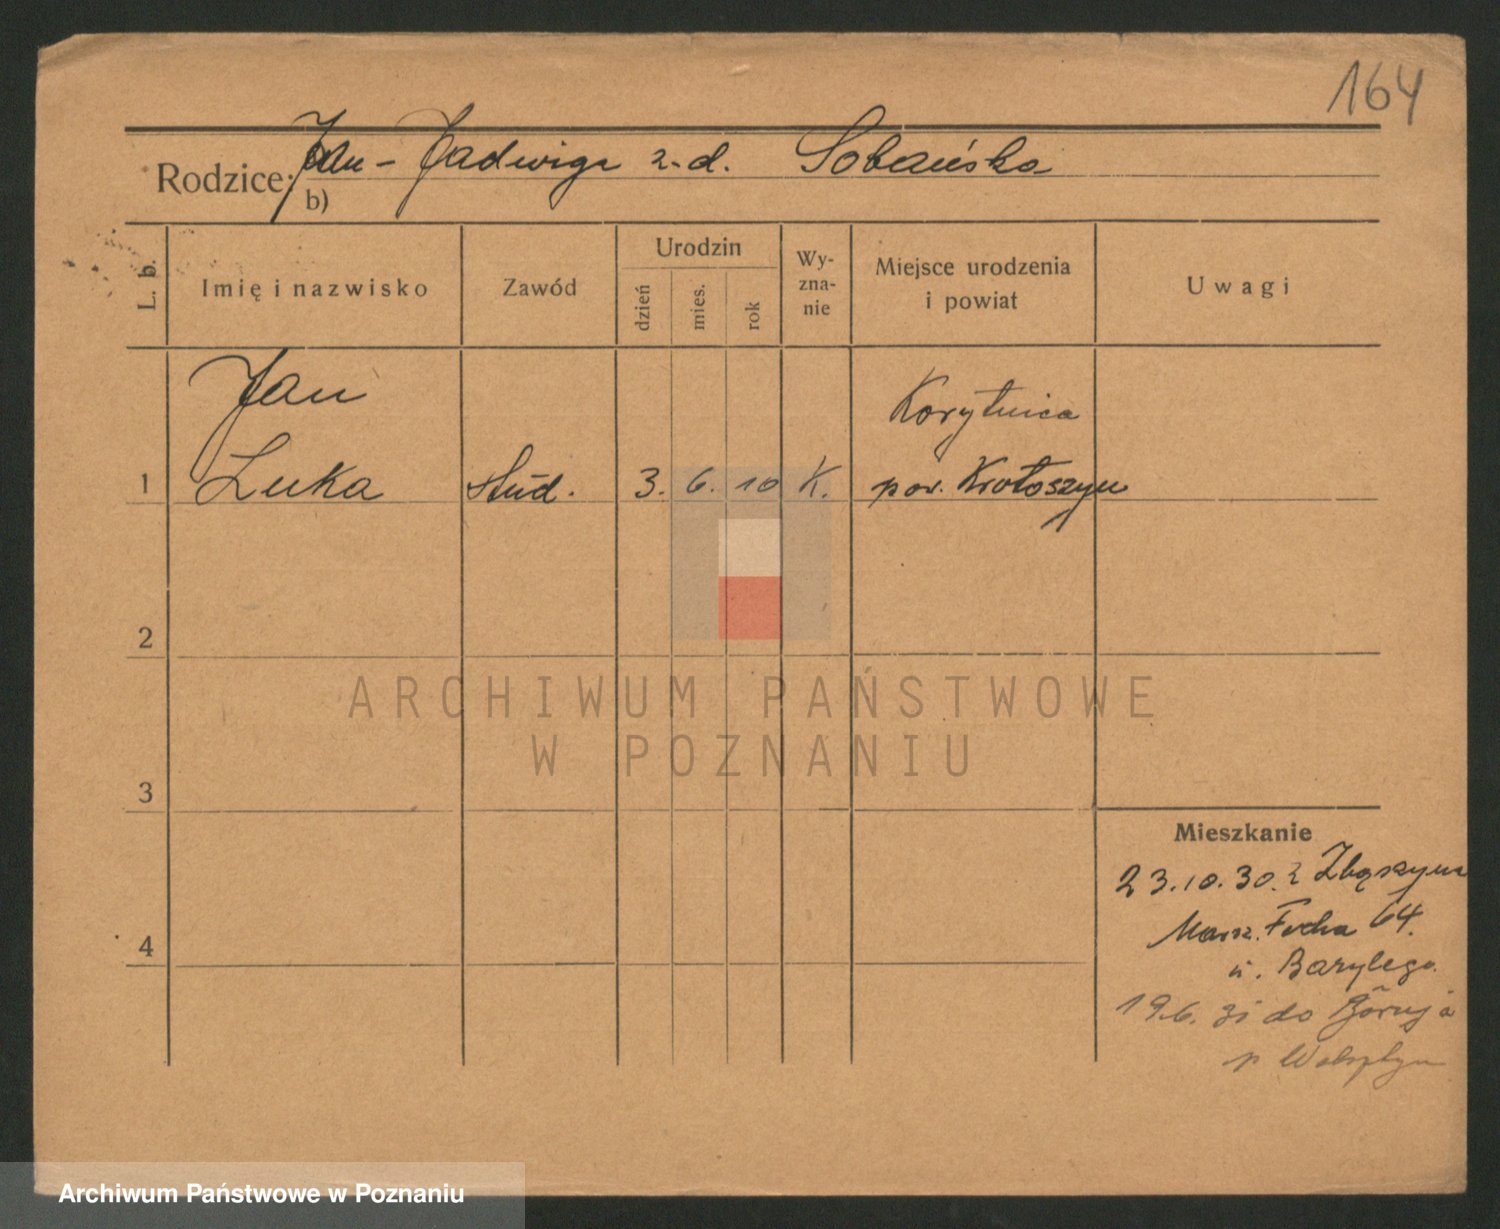 164
Rodzice: Jan - Jadwiga z d. Sobańska
b)
L. b.
Imię i nazwisko
Zawód
Urodzin
dzień
mies.
rok
Wy-
zna-
nie
Miejsce urodzenia
i powiat
Uwagi
Jan
Korytnica
1 Luka stud. 3. 6. 10 K. pow. Krotoszyn
2
ARCHIWUM PAŃSTWOWE
W POZNANIU
3
Mieszkanie
23.10.30 z Zbąszyna
Marsz. Focha 64.
u. Barylego.
4
19.6.31 do Góruja
p Wolsztyn
Archiwum Państwowe w Poznaniu